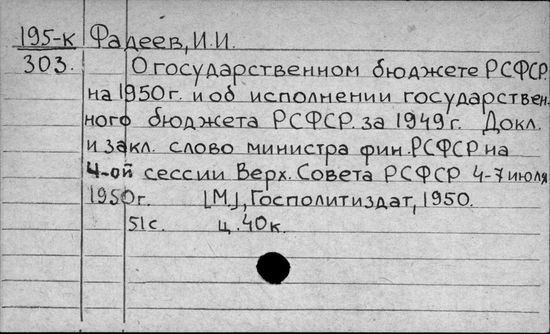 195-к Фадеев, И.И.
303. О государственном бюджете РСФСР
на 1950г. и об исполнении государствен-
ного бюджета РСФСР. за 1949г. Докл.
и закл. слово министра фин. РСФСР на
4-ой сессии Верх. Совета РСФСР 4-7 июля
1950г. [М.], Госполитиздат, 1950.
51с. ц. 40к.